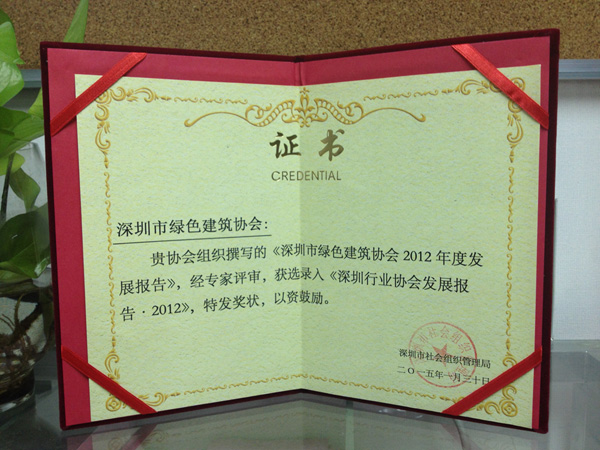 证书
CREDENTIAL
深圳市绿色建筑协会:
贵协会组织撰写的《深圳市绿色建筑协会 2012 年度发
展报告》，经专家评审，获选录入《深圳行业协会发展报
告·2012》，特发奖状，以资鼓励。
深圳市社会组织管理局
二〇一五年一月三十日